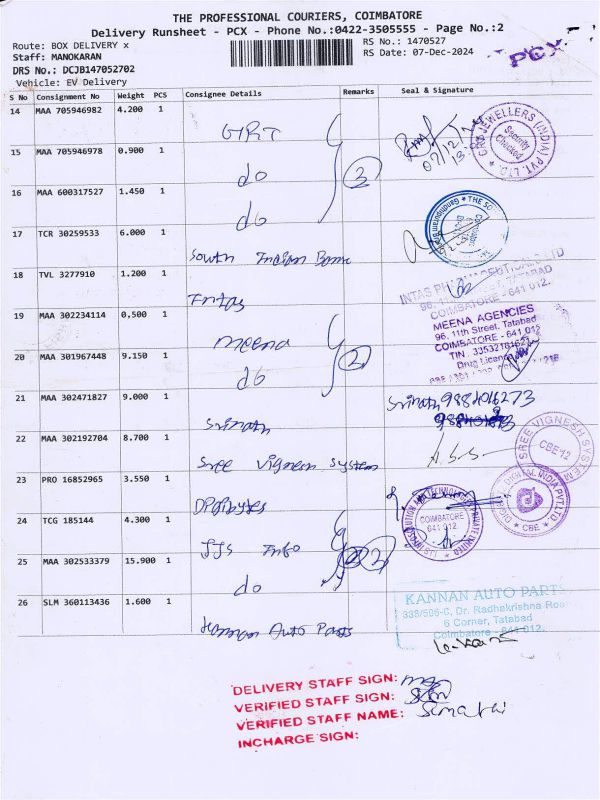 THE PROFESSIONAL COURIERS, COIMBATORE
Delivery Runsheet - PCX - Phone No.:0422-3505555 - Page No.:2
Route: BOX DELIVERY x
RS No.: 1470527
Staff: MANOKARAN
RS Date: 07-Dec-2024
PCX
DRS No.: DCJB147052702
Vehicle: EV Delivery
S No Consignment No Weight PCS Consignee Details Remarks Seal & Signature
14 MAA 705946982 4.200 1 GRT
GRT JEWELLERS (INDIA) PVT. LTD.
Security Checked
15 MAA 705946978 0.900 1 do
3
16 MAA 600317527 1.450 1 do
17 TCR 30259533 6.000 1 South Indian Bank
18 TVL 3277910 1.200 1 Intas
COIMBATORE - 641 012.
19 MAA 302234114 0,500 1 meena
MEENA AGENCIES
96, 11th Street, Tatabad
COIMBATORE - 641 012
20 MAA 301967448 9.150 1 do
2
21 MAA 302471827 9.000 1 Srinath
Srinath 9884016273
22 MAA 302192704 8.700 1 Sree Vignesh System
SREE VIGNESH SYSTEM
CBE12
23 PRO 16852965 3.550 1
DIGITAL INDIA PVT LTD
CBE
24 TCG 185144 4.300 1 JJS Info
COIMBATORE
641 012.
25 MAA 302533379 15.900 1 do
2
26 SLM 360113436 1.600 1 Kannan Auto Parts
KANNAN AUTO PARTS
338/506-C, Dr. Radhakrishna Roa
6 Corner, Tatabad
Coimbatore - 641 012.
DELIVERY STAFF SIGN:
VERIFIED STAFF SIGN:
VERIFIED STAFF NAME:
INCHARGE SIGN: